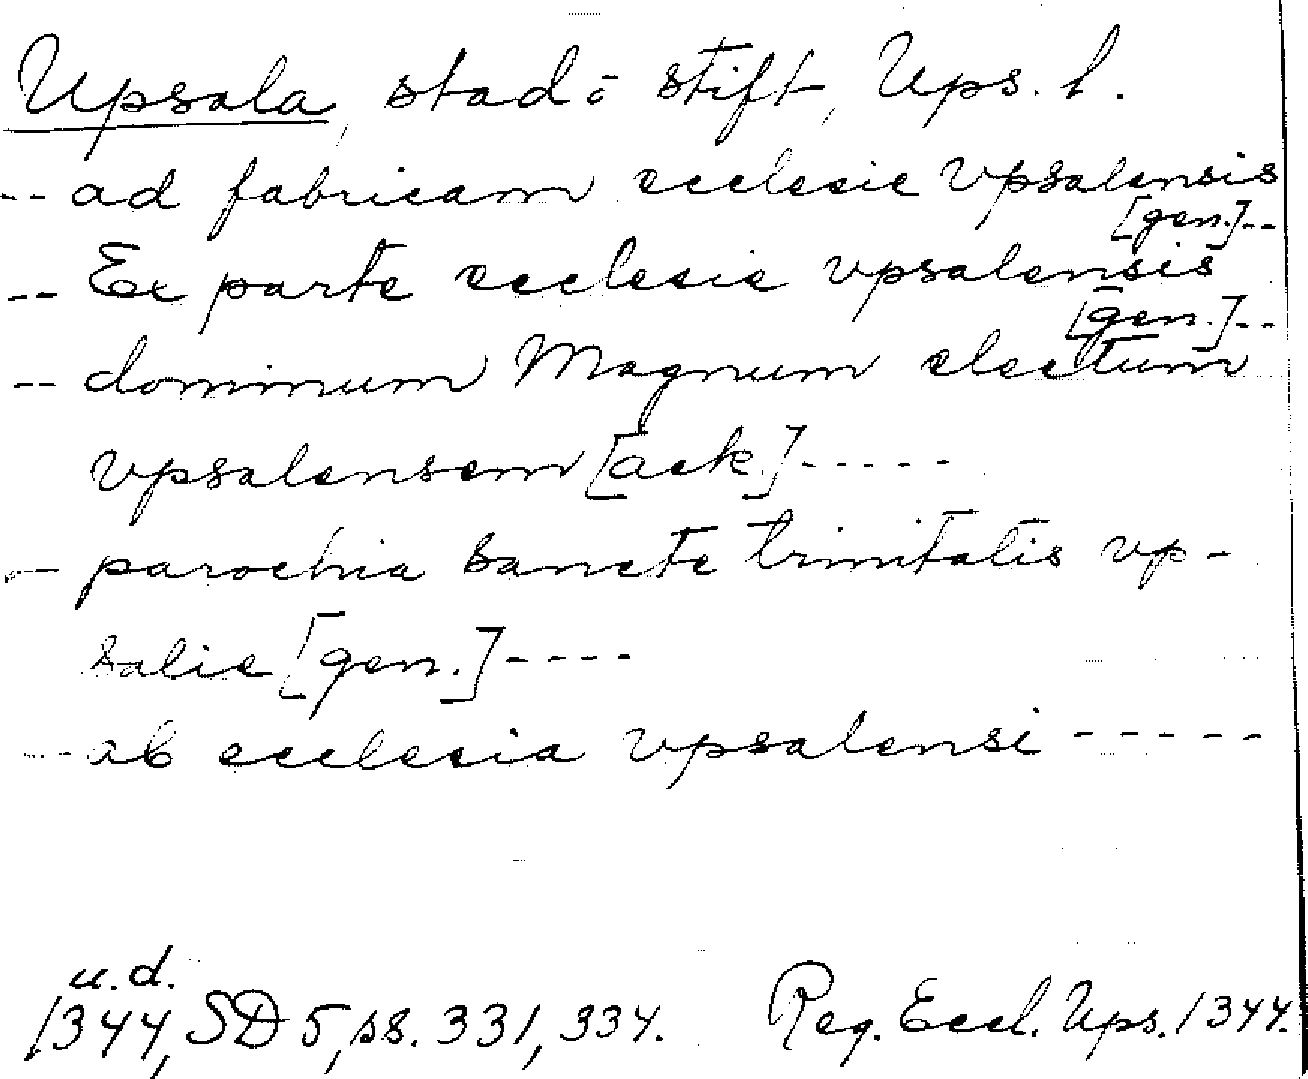 Upsala, stad o stift, Ups. l.
-- ad fabricam ecclesie vpsalensis
[gen.]--
-- Ex parte ecclesie vpsalensis
[gen.]--
-- dominum Magnum electum
vpsalensem [ack.]-----
-- parochia sancte trinitatis vp-
salie [gen.]----
-- ab ecclesia vpsalensi -----
u.d.
1344, SD 5, ss. 331, 334. Reg. Eccl. Ups. 1344.